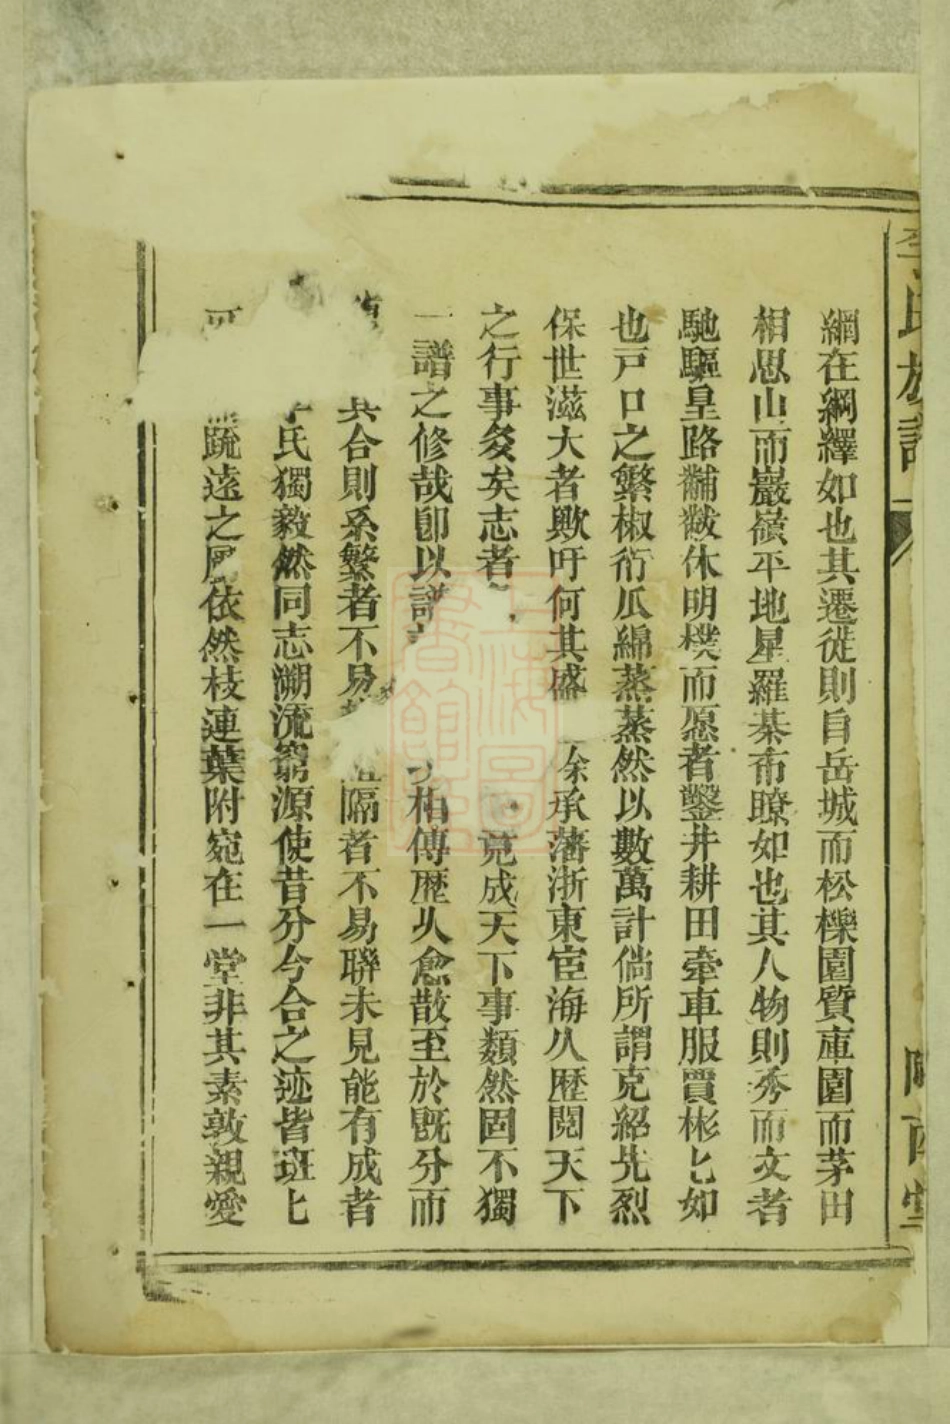 李氏族譜
隴西堂
網在綱繹如也其遷徙則自岳城而松櫟園質庫園而茅田
相思山而巖嶺平地星羅棊布瞭如也其人物則秀而文者
馳驅皇路黼黻休明樸而愿者鑿井耕田牽車服賈彬匕如
也戸口之繁椒衍瓜綿蒸蒸然以數萬計倘所謂克紹先烈
保世滋大者歟吁何其盛 余承藩浙東宦海久歷閱天下
之行事多矣志者 竟成天下事類然固不獨
一譜之修哉卽以譜 相傳歷久愈散至於旣分而
其合則系繁者不易 隔者不易聯未見能有成者
李氏獨毅然同志溯流窮源使昔分今合之迹皆班匕
疏遠之 依然枝連葉附宛在一堂非其素敦親愛
上海圖書館藏